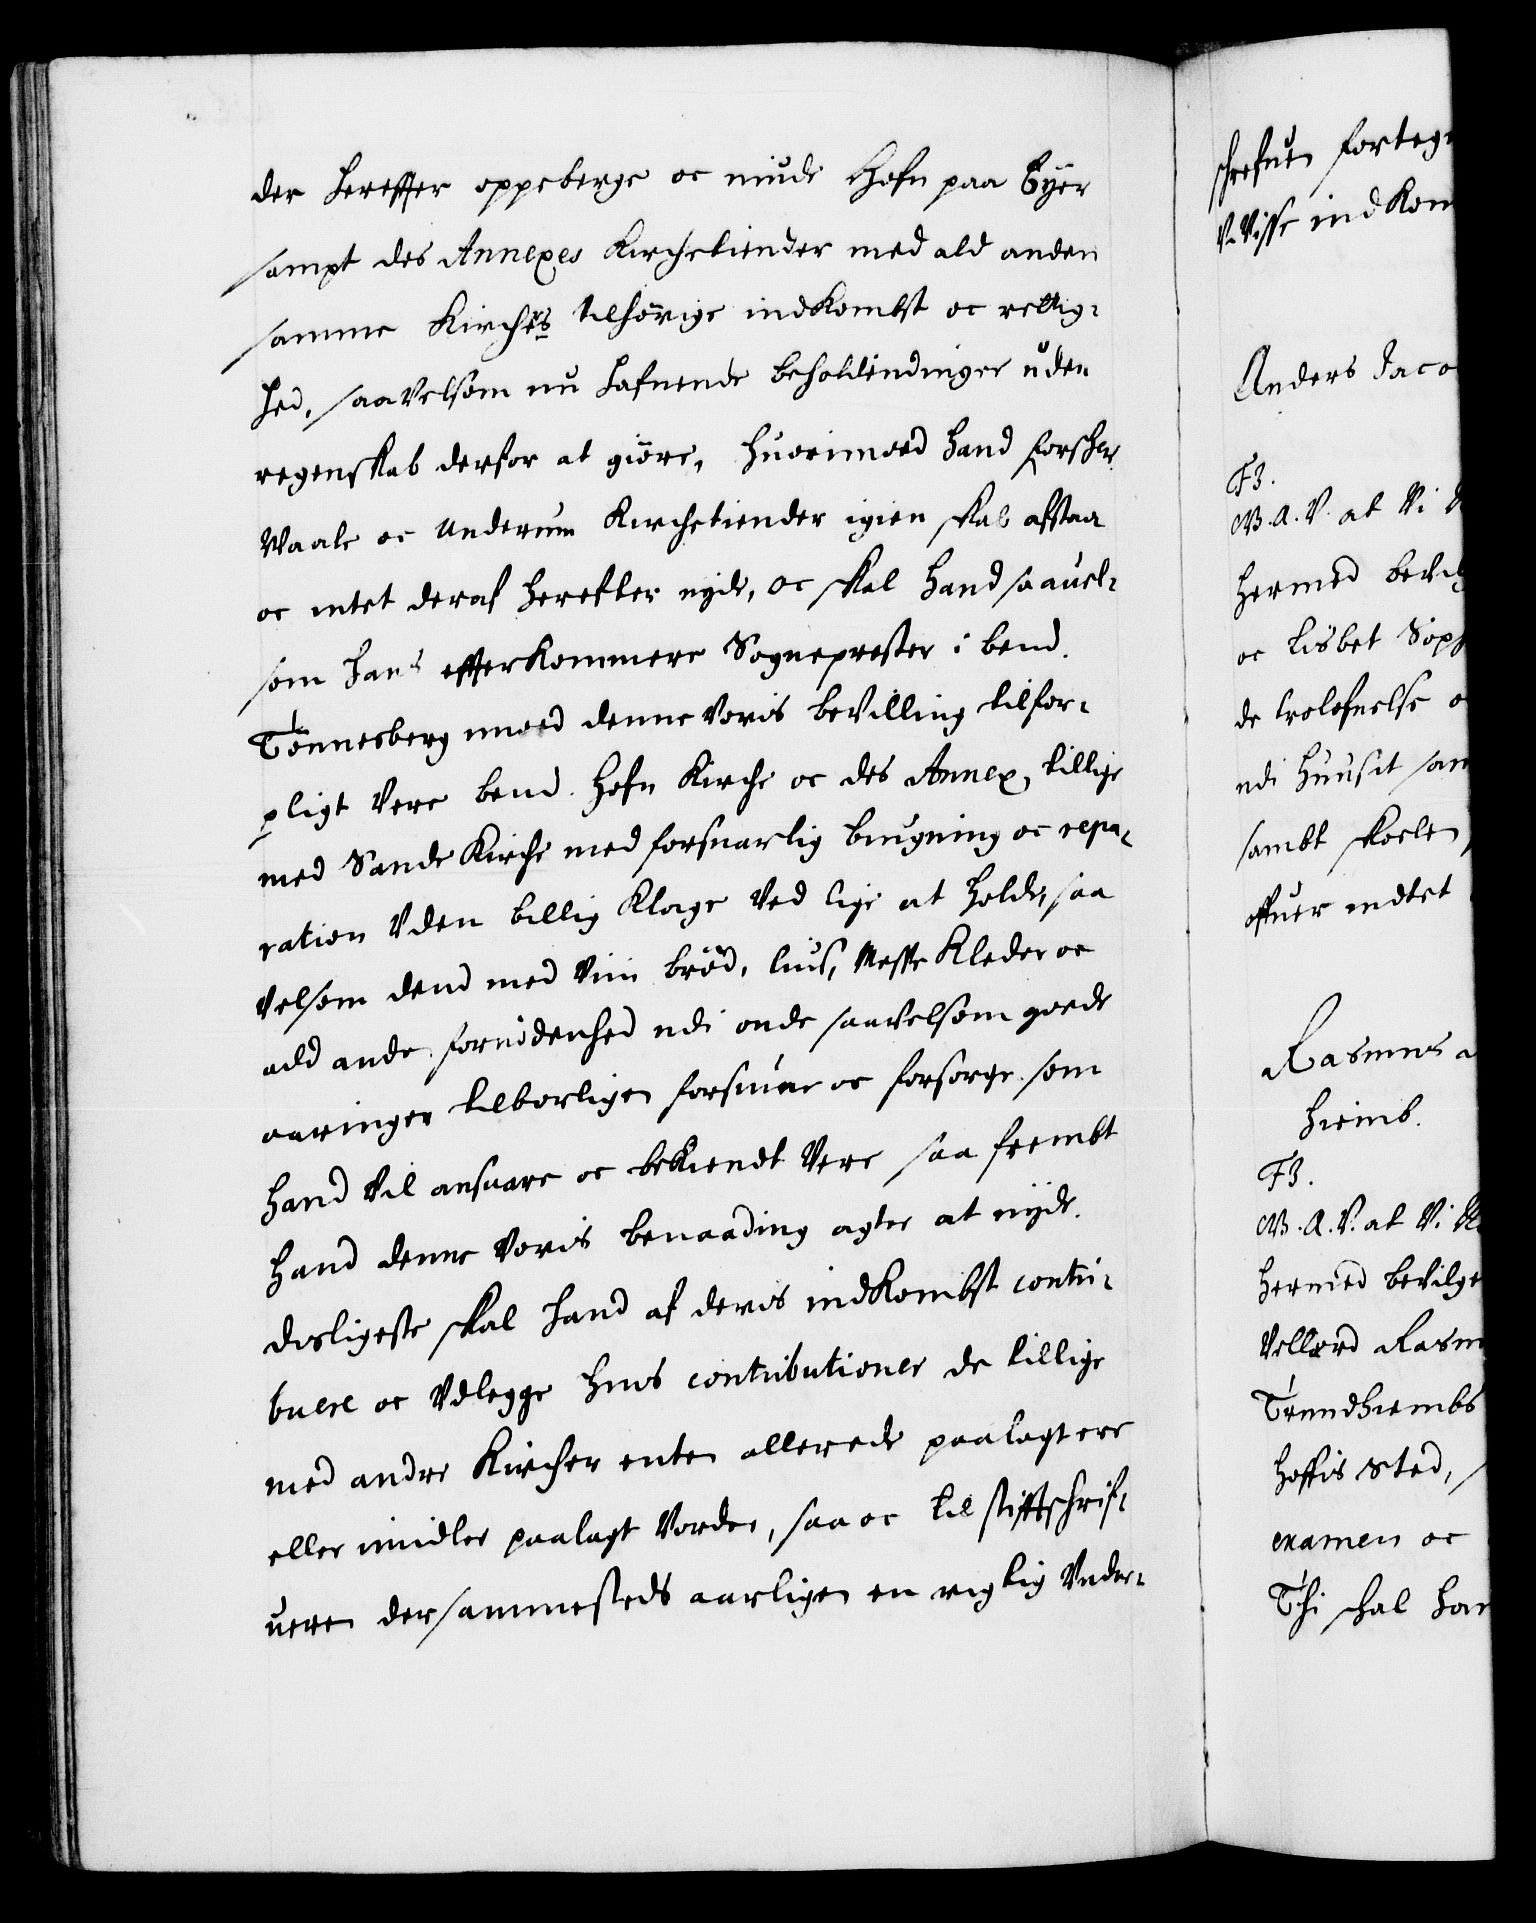 der hereffter oppeberge oc niude Hofn paa Eÿer
sampt des Annexes Kirchetiender med ald anden
samme Kirchis tilhörige indKombst oc rettig-
hed, saavelsom nu hafuende beholdendinger uden
regenskab derfor at giöre, huorimoed hand forschr.
Waale oc Underum Kirchetiender igien skal afstaa
oc intet deraf herefter nyde, oc skal hand saauel-
som hans effterKommere Sogneprester i bend.
Tönnesberg imoed denne Voris beVilling tilfor-
pligt Vere bend. Hofn Kirche oc des Annex, tillige
med Sande Kirche med forsuarlig bugning oc repa-
ration Uden billig Klage Ved lige at holde, saa
Velsom dend med Viin bröd, lius, Messe Kleder oc
ald ande fornödenhed udi onde saavelsom goede
aaringer tilbörligen forsiune oc forsorge som
hand Vil ansuare oc beKiendt Vere saa frembt
hand denne Voris benaading agter at nyde.
disligeste skal hand af deris indKombst contri-
buere oc Udlegge huis contributioner de tillige
med andre Kircher enten allerede paalagt ere
eller imidler paalagt Vorder, saa oc til stifftschrif-
ueren dersammesteds aarligen en rigtig Under-
schrefuen forteg
ViVisse indKom
Anders Jaco
F3.
G.A.V. at Vi
hermed bevilg
oc Lisbet Soph
de trolofuelse o
udi Huuset sam
sambt skoele
offuer indtet
Rasmus a
hiemb.
F3.
G.A.V. at Vi
hermed beVilge
Vellerd Rasm
Trundhiembs
hoffis sted,
examen oc
Thi schal han